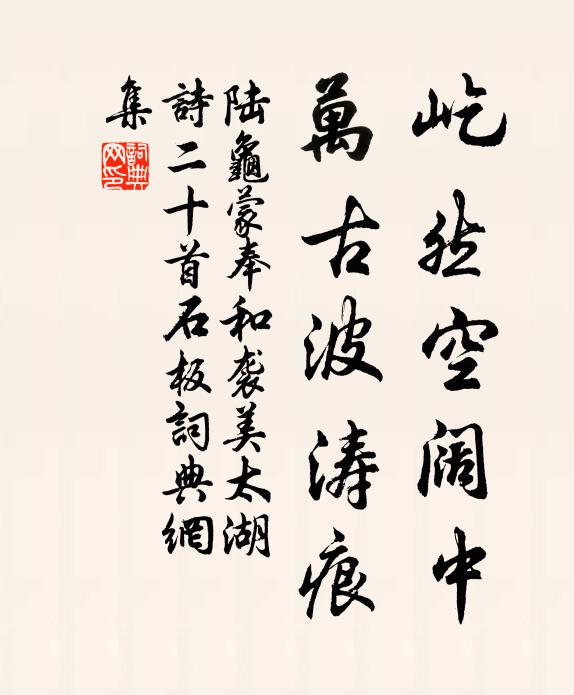 屹然空阔中
萬古波涛痕
陆龜蒙奉和袭美太湖
詩二十首石板詞典網
集
詞典網印